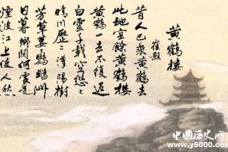 黄鶴樓
崔颢
昔人已乘黄鶴去
此地空餘黄鶴樓
黄鶴一去不復返
白雲千載空悠悠
晴川歷歷漢陽樹
芳草萋萋鸚鵡洲
日暮鄉關何處是
烟波江上使人愁
中国历史网